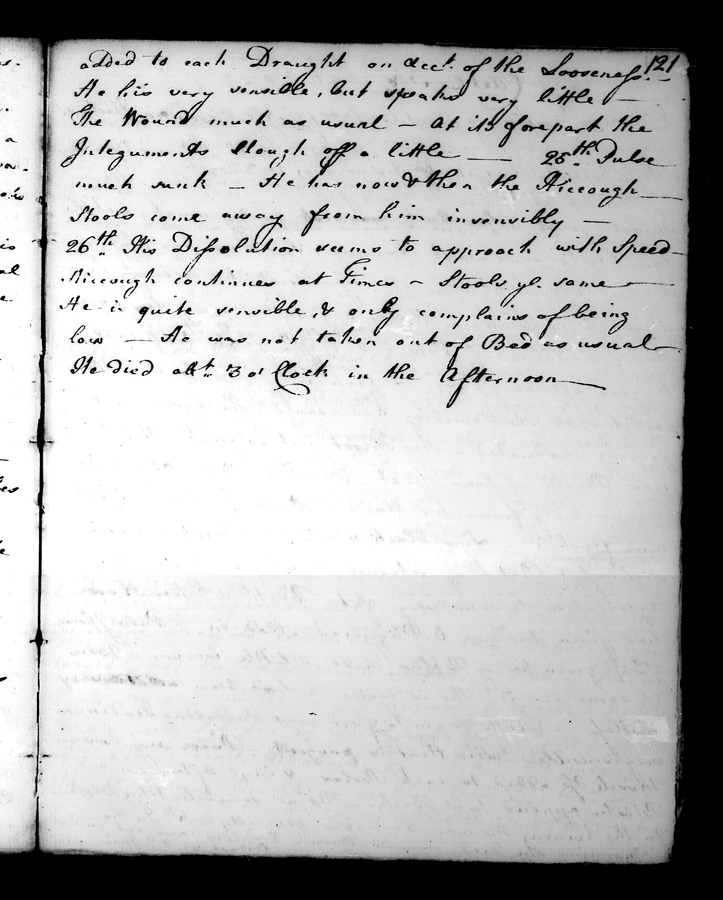 121
added to each Draught on Acct. of the Looseness. —
He his very sensible, but speaks very little —
The Wound much as usual — At its forepart the
Integuments Slough off a little — 25th. Pulse
much sunk — He has now & then the Hiccough —
Stools come away from him insensibly —
26th. His Dissolution seems to approach with Speed —
Hiccough continues at Times — Stools ye. same —
He is quite sensible, & only complains of being
low — He was not taken out of Bed as usual —
He died abt. 3 o'Clock in the Afternoon —